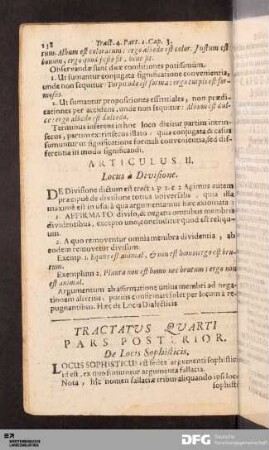 138 Tract. 4. Part. 1. Cap. 3.
rum. Album est coloratum: ergo albedo est color. Justum est
bonum, ergo qui juste fit, bene fit.
Observandæ sunt duæ conditiones potissimum.
1. Ut sumantur conjugata significatione convenientia,
unde non sequitur: Turpitudo est forma: ergo turpis est for-
mosus.
2. Ut sumantur propositiones essentiales, non prædi-
cationes per accidens, unde non sequitur: Album est dul-
ce: ergo albedo est dulcedo.
Terminus inferens in hoc loco dicitur partim intrinse-
cus, partim extrinsecus illato: quia conjugata de causa
sumuntur significatione formali convenientia, sed dif-
ferentia in modo significandi.
ARTICULUS II.
Locus à Divisione.
DE Divisione dictum est tract. 1 p. 2. c. 2 Agimus autem
præcipuè de divisione totius universalis, quia illa
maximè est in usu, à qua argumentantur hæc axiomata:
1. AFFIRMATO diviso, & negatis omnibus membris
dividentibus, excepto uno, concluditur quod est reliqu-
um.
2. A quo removentur omnia membra dividentia, ab
eodem removetur divisum.
Exemp. 1. Equus est animal, & non est homo: ergo est bru-
tum.
Exemplum 2. Planta non est homo nec brutum: ergo non
est animal.
Argumentum ab affirmatione unius membri ad nega-
tionem alterius, potius confirmari solet per locum à re-
pugnantibus. Hæc de Locis Dialecticis.
TRACTATUS QUARTI
PARS POSTERIOR.
De Locis Sophisticis.
LOCUS SOPHISTICUS est sedes argumenti sophistici
id est, ex quo sumuntur argumenta fallacia.
Nota, hîc nomen fallaciæ etiam aliquando ipsi loco
sophisti-
DFG Deutsche
Forschungsgemeinschaft